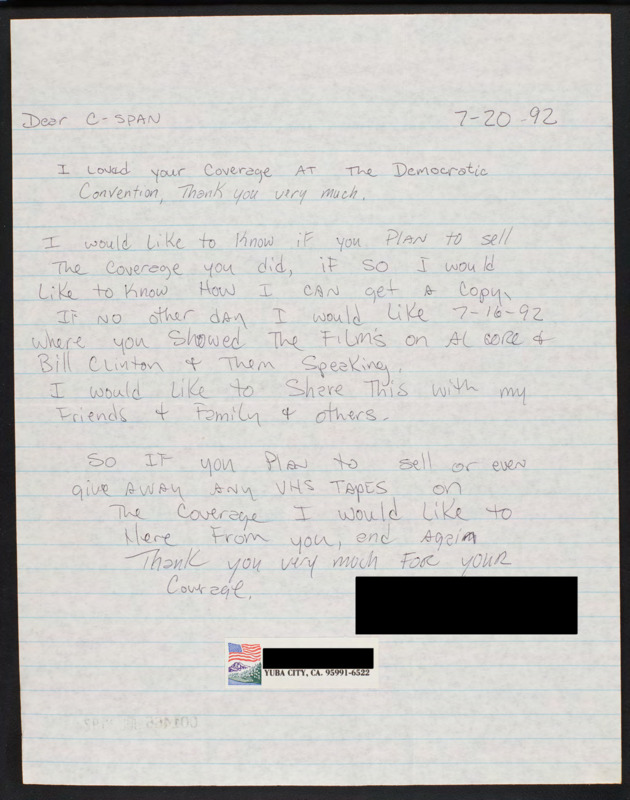 Dear C-SPAN
7-20-92
I Loved your Coverage AT The Democratic
Convention, Thank you very much.
I would Like to Know if you PLAN to sell
The Coverage you did, if so I would
Like to Know How I CAN get A Copy.
IF NO other day I would Like 7-16-92
where you Showed The Film's on AL GORE &
Bill Clinton & Them Speaking.
I would Like to Share This with my
Friends & Family & others.
So IF you Plan to sell or even
give AWAY ANY VHS TAPES on
The Coverage I would Like to
Here From you, and Again
Thank you very much For your
Coverage.
YUBA CITY, CA. 95991-6522